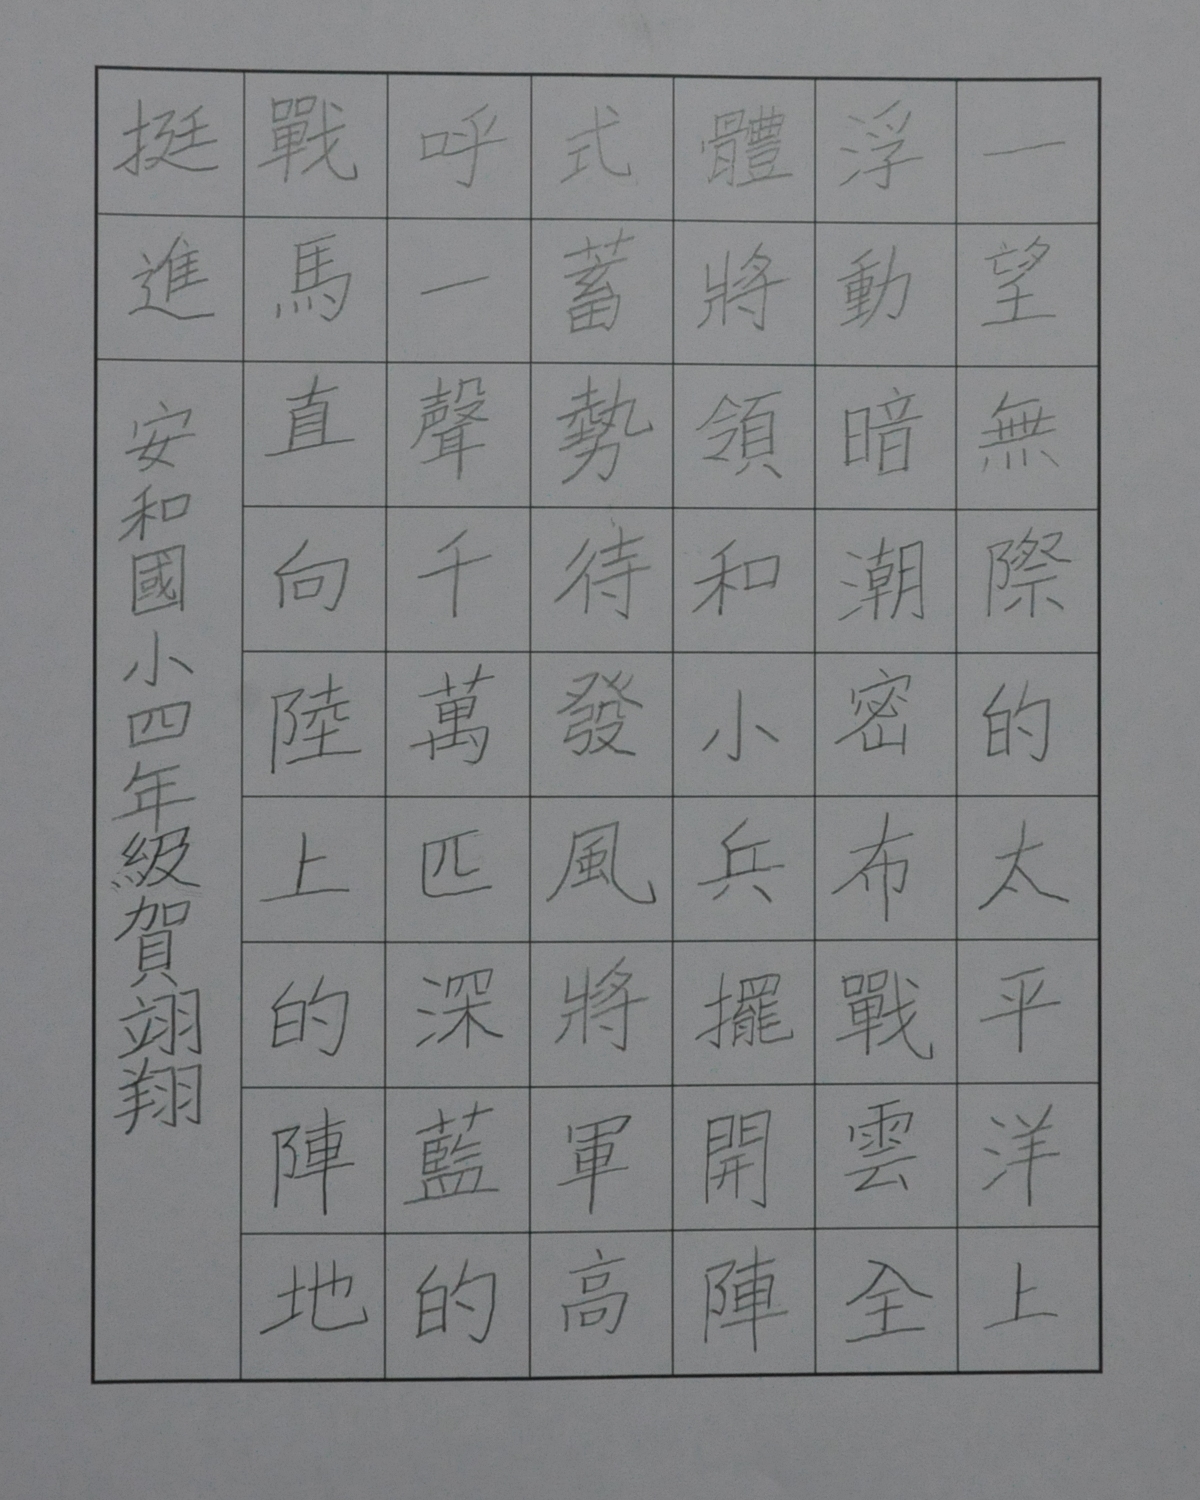 一望無際的太平洋上
浮動暗潮密布戰雲全
體將領和小兵擺開陣
式蓄勢待發風將軍高
呼一聲千萬匹深藍的
戰馬直向陸上的陣地
挺進
安和國小四年級賀翊翔